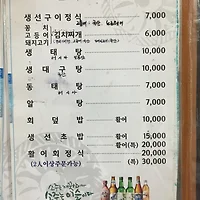 생선구이정식 7,000
꽁치
고등어 김치찌개 6,000
돼지고기
생태탕 10,000
생대구탕 10,000
동태탕 7,000
알탕 7,000
회덮밥 활어 10,000
생선초밥 활어 15,000
활어(특) 20,000
활어회정식 20,000
(2人이상주문가능) (특) 30,000